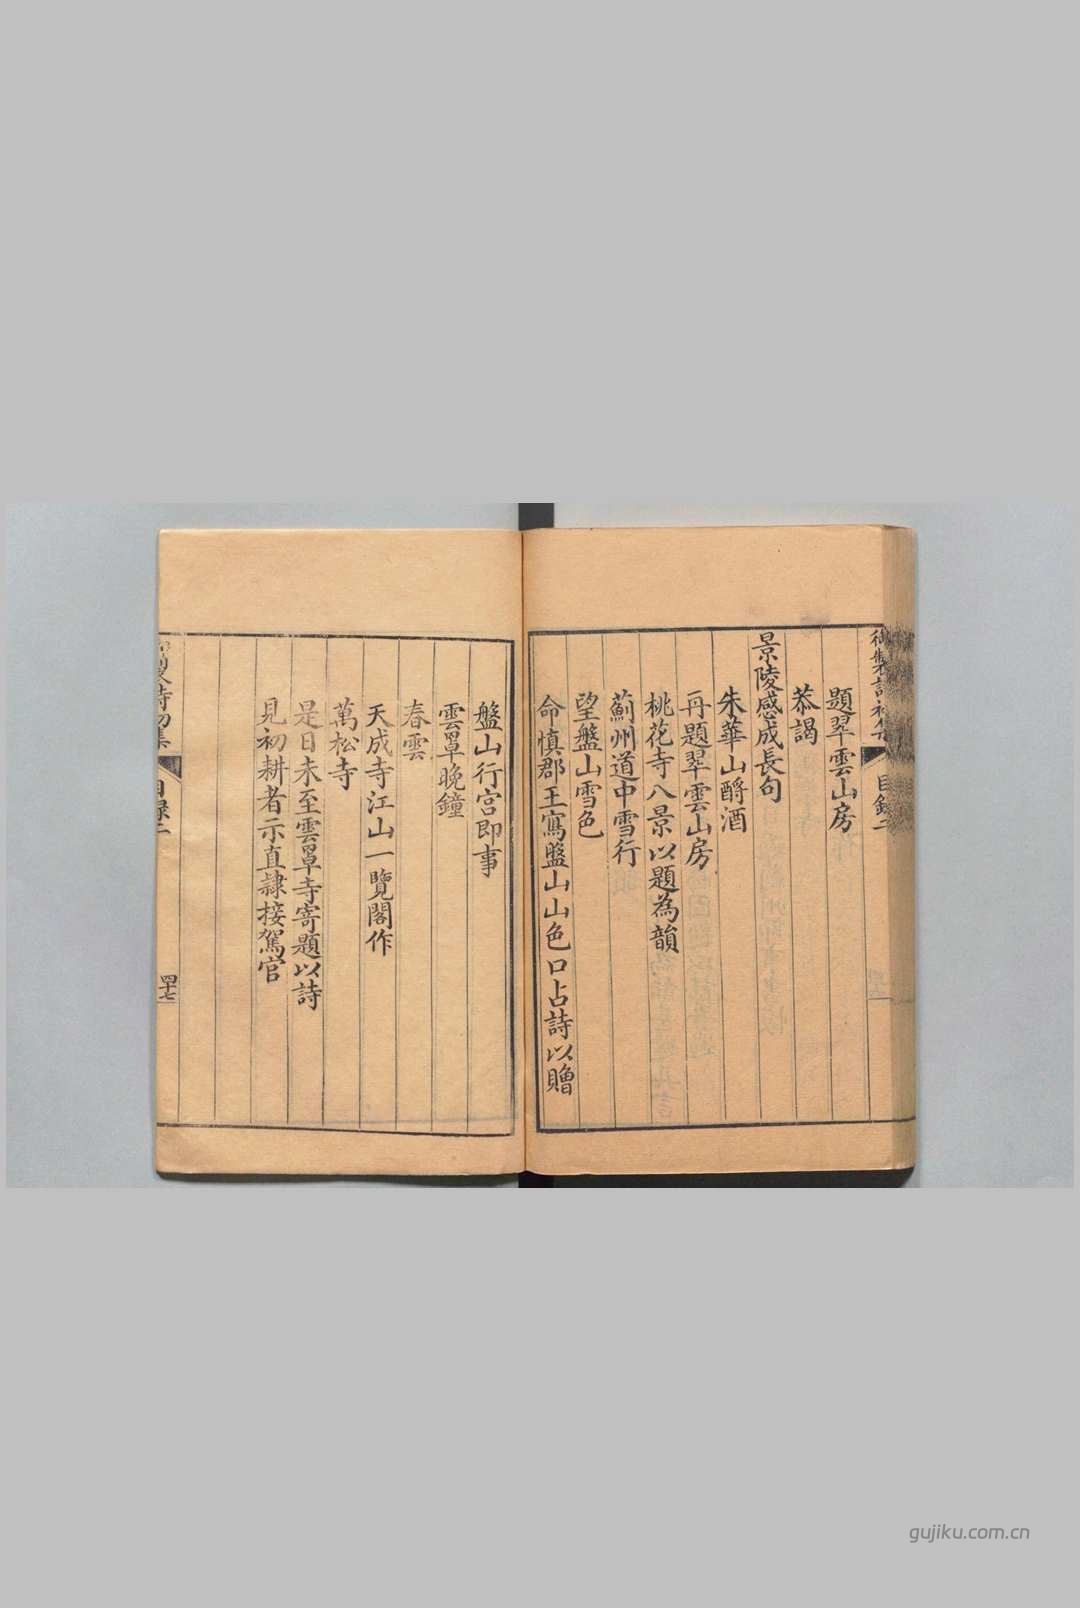 御製詩初集 目錄二
題翠雲山房
恭謁
景陵感成長句
朱華山酹酒
再題翠雲山房
桃花寺八景以題為韻
薊州道中雪行
望盤山雪色
命慎郡王寫盤山山色口占詩以贈
盤山行宮即事
雲罩晚鐘
春雲
天成寺江山一覽閣作
萬松寺
是日未至雲罩寺寄題以詩
見初耕者示直隸接駕官
製詩初集 目錄二 四十七
gujiku.com.cn